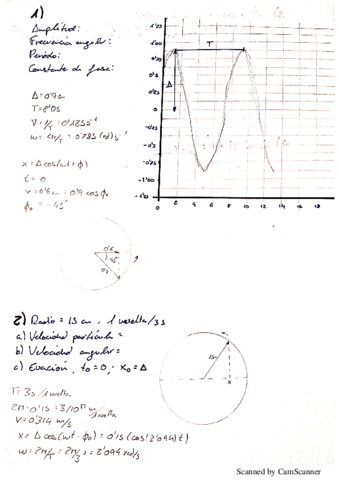 1)
Amplitud:
Frecuencia angular:
Periodo:
Constante de fase:
A: 0'9 m
T = 8'0 s
V = 1/T = 0'125 s⁻¹
w = 2π/T = 0'785 rad s⁻¹
x = A cos(wt + ϕ)
t = 0
ϕ₀ = -45°
T
A
1'25
1'00
0'75
0'5
0'25
0
-0'25
-0'5
-0'75
-1'00
2 4 6 8 10 12 14 16 18
45°
2) Radio = 15 cm, 1 vuelta/3 s
a) Velocidad partícula =
b) Velocidad angular =
c) Ecuación, t₀ = 0, x₀ = A
15
x
T: 3s /1 vuelta
2π · 0'15 = 3/10 π m/vuelta
V = 0'314 m/s
x = A cos(wt · ϕ₀) = 0'15 (cos(2'094) t)
w = 2π/T = 2π/3 = 2'094 rad/s
Scanned by CamScanner